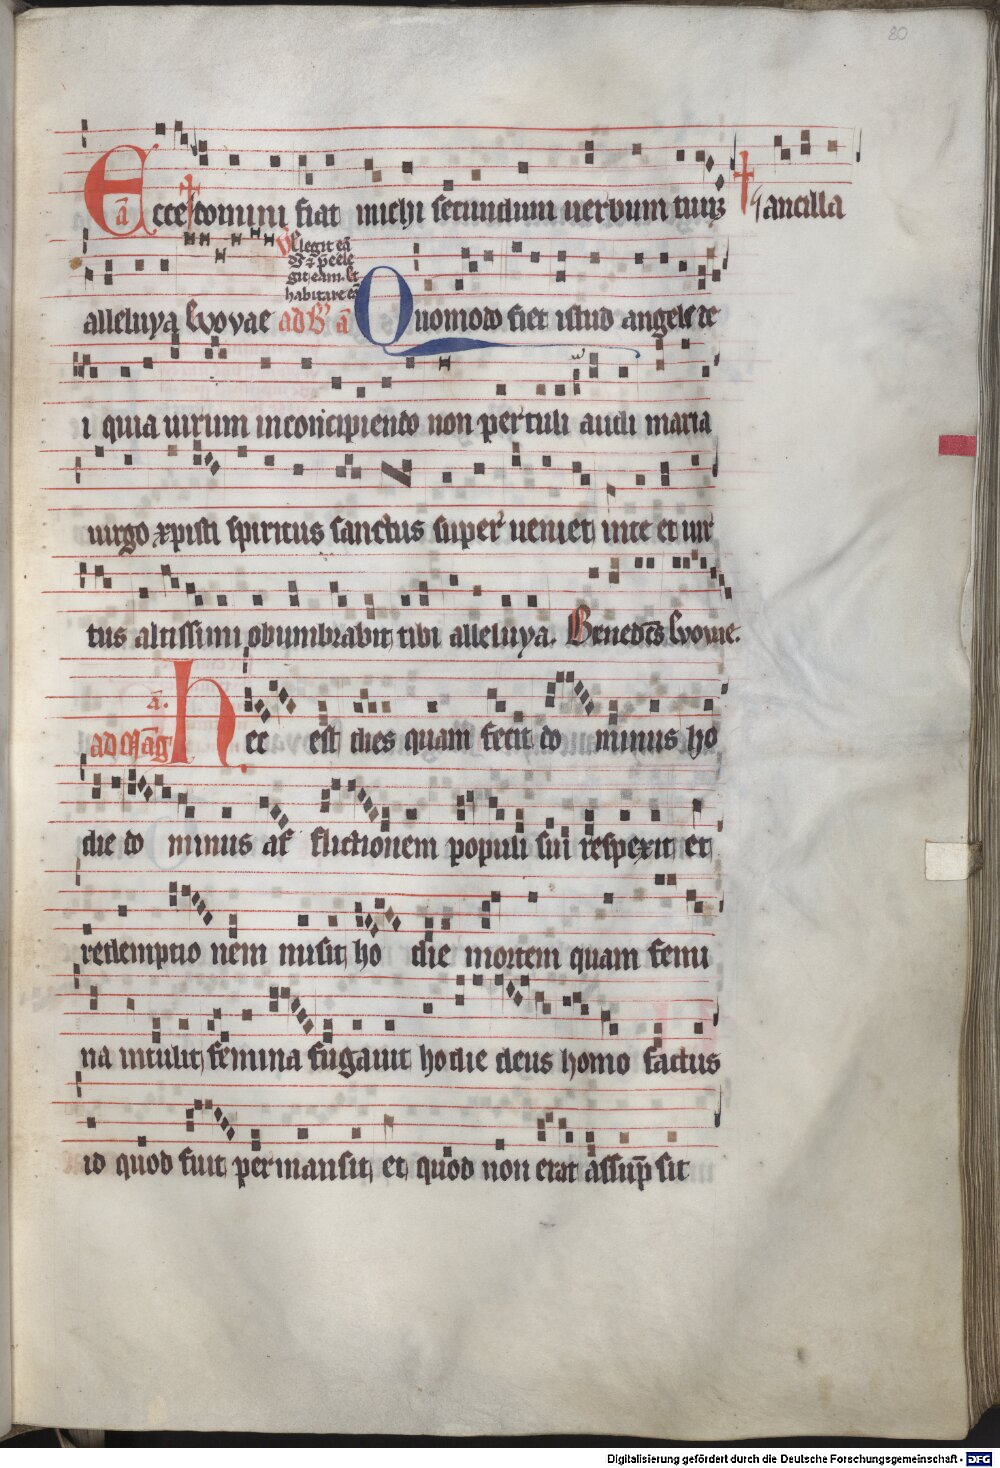 80
Ecce domini fiat michi secundum uerbum tuuȝ ancilla
ā
Elegit eā
git eam. et
habitare
alleluya Euovae ad B' ā Quomodo fiet istud angele de
i quia uirum in concipiendo non pertuli audi maria
uirgo xpisti spiritus sanctus super ueniet in te et uir
tus altissimi obumbrabit tibi alleluya. Benedc̄s Euovae.
ā.
ad Māg Hec est dies quam fecit do minus ho
die do minus af flictionem populi sui respexit et
redemptio nem misit ho die mortem quam femi
na intulit femina fugauit hodie deus homo factus
id quod fuit permansit et quod non erat assūpsit
Digitalisierung gefördert durch die Deutsche Forschungsgemeinschaft - DFG